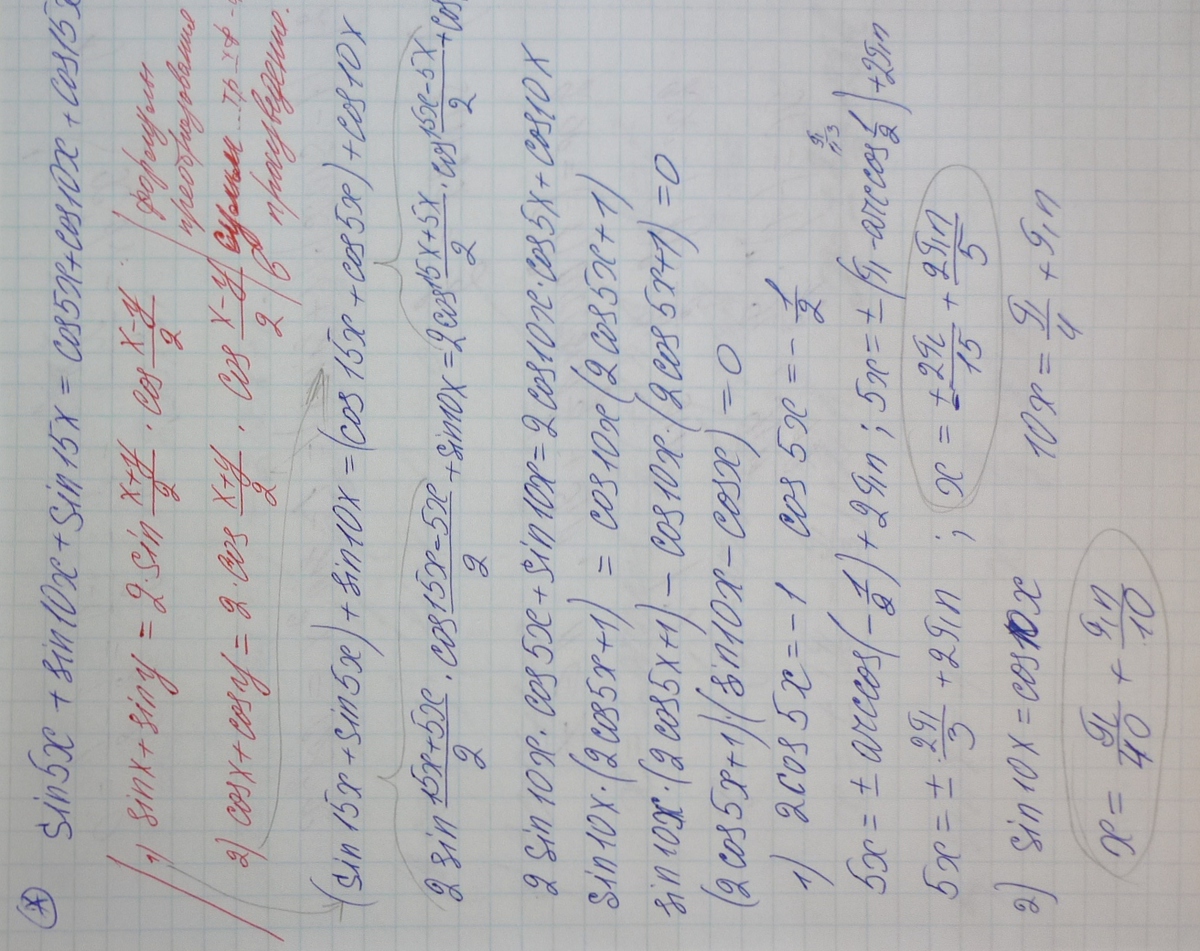 (*) sin5x + sin10x + sin15x = cos5x + cos10x + cos15x
1) sinx + siny = 2·sin (x+y)/2 · cos (x-y)/2
2) cosx + cosy = 2·cos (x+y)/2 · cos (x-y)/2
формулы
преобразования
суммы тр-х ф-
в произведение.
(sin15x + sin5x) + sin10x = (cos15x + cos5x) + cos10x
2 sin (15x+5x)/2 · cos (15x-5x)/2 + sin10x = 2cos (15x+5x)/2 · cos (15x-5x)/2 + cos
2 sin10x · cos5x + sin10x = 2cos10x · cos5x + cos10x
sin10x · (2cos5x+1) = cos10x (2cos5x+1)
sin10x · (2cos5x+1) - cos10x · (2cos5x+1) = 0
(2cos5x+1)·(sin10x - cosx) = 0
1) 2cos5x = -1 cos5x = -1/2
5x = ± arccos(-1/2) + 2πn ; 5x = ± (π - arccos 1/2) + 2πn
π/3
5x = ± 2π/3 + 2πn ; x = ± 2π/15 + 2πn/5
2) sin10x = cos10x 10x = π/4 + πn
x = π/40 + πn/10